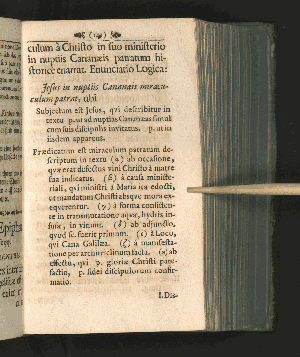 culum à Christo in suo ministerio
in nuptiis Cananæis patratum hi-
storicè enarrat. Enunciatio Logica:
Jesus in nuptiis Cananæis miracu-
culum patrat, ubi
Subjectum est Jesus, qvi describitur in
textu p. ut ad nuptias Cananæas simul
cum suis discipulis invitatus. p. ut in
iisdem apparens.
Prædicatum est miraculum patratum de-
scriptum in textu (α) ab occasione,
qvæ erat defectus vini Christo à matre
sua indicatus. (β) à causa ministe-
riali, qvi ministri à Maria ita edocti,
ut mandatum Christi absqve mora ex-
eqverentur. (γ) à forma consisten-
te in transmutatione aqvæ, hydriis in-
fusæ, in vinum. (δ) ab adjuncto,
quod sc. fuerit primum. (ε) à Loco,
qvi Cana Galilææ. (ζ) à manifesta-
tione per architriclinum facta. (η) ab
effectu, qvi p. gloriæ Christi pate-
factio, p. fidei discipulorum confir-
matio.
I. Dis-